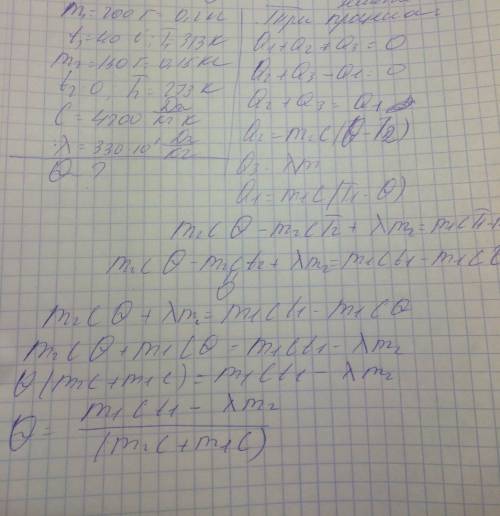 m₁=200 г = 0.2 кг
t₁=40 C; T₁=313 K
m₂=150 г = 0.15 кг
t₂ 0 T₂ = 273 K
C = 4200 Дж/кг K
λ = 330·10³ Дж/кг
Θ - ?
При
Q1+Q2+Q3=0
Q2+Q3-Q1=0
Q2+Q3=Q1
Q2=m2C(Θ-T2)
Q3=λm
Q1=m1C(T1-Θ)
m2CΘ-m2CT2+λm2=m1CT1-
m2CΘ-m2Ct2+λm2=m1Ct1-m1CΘ
0
m2CΘ+λm2=m1Ct1-m1CΘ
m2CΘ+m1CΘ=m1Ct1-λm2
Θ(m2C+m1C)=m1Ct1-λm2
Θ= m1Ct1-λm2/(m2C+m1C)